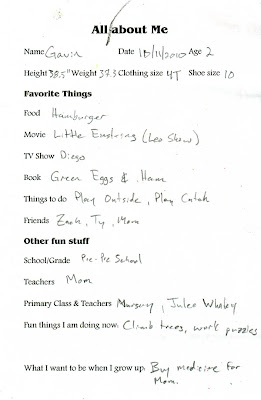 All about Me
Name Gavin Date 10/11/2010 Age 2
Height 38.5" Weight 37.3 Clothing size 4T Shoe size 10
Favorite Things
Food Hamburger
Movie Little Einstring (Leo Show)
TV Show Diego
Book Green Eggs & Ham
Things to do Play Outside, Play Catch
Friends Zach, Ty, Mom
Other fun stuff
School/Grade Pre-Pre School
Teachers Mom
Primary Class & Teachers Nursury, Julee Whaley
Fun things I am doing now. Climb trees, work puzzles
What I want to be when I grow up Buy medicine for
Mom.